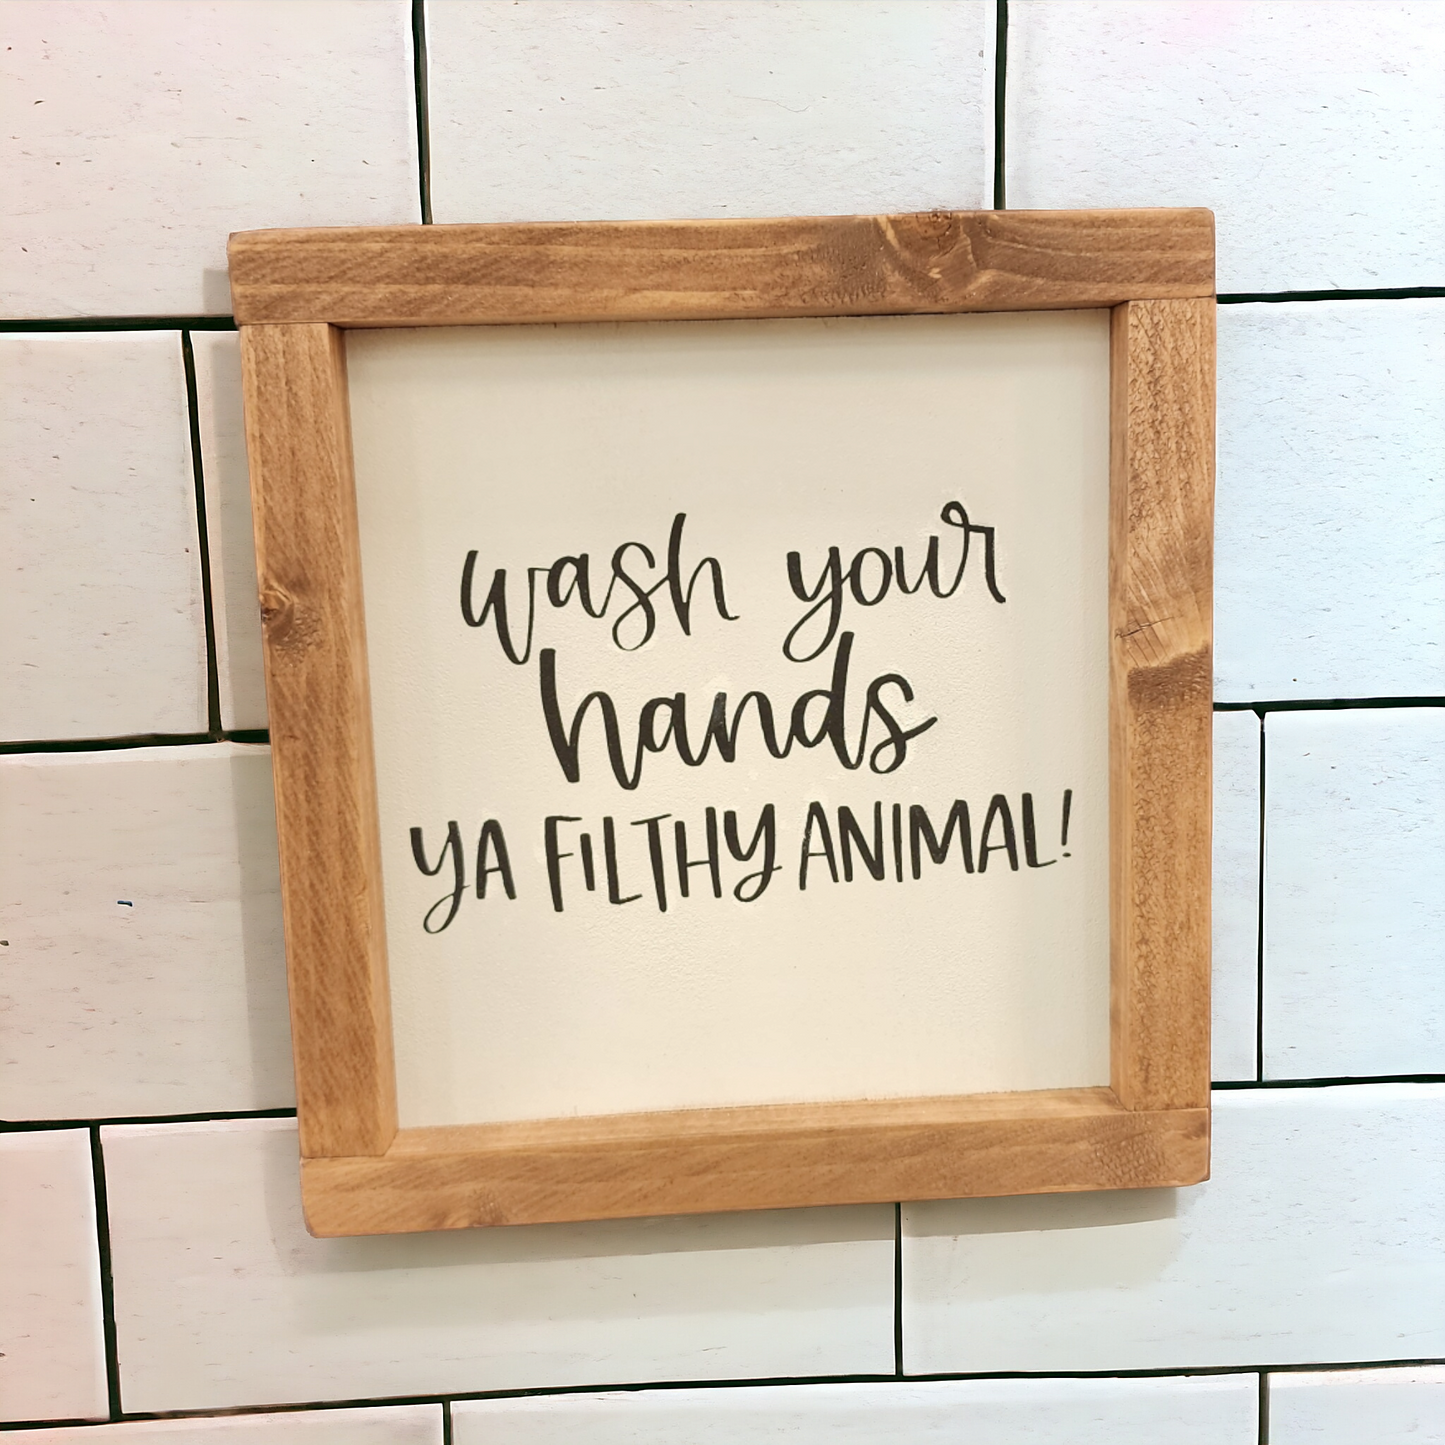 wash your
hands
YA FILTHY ANIMAL!